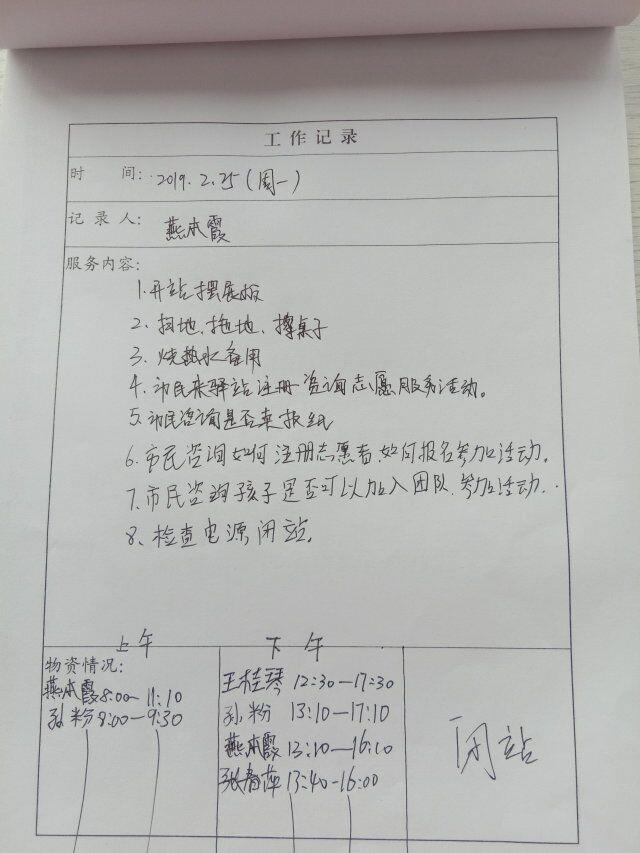 工作记录
时 间: 2019.2.25(周一)
记录人: 燕本霞
服务内容:
1.开站摆展板
2、扫地、拖地、擦桌子
3、烧热水备用
4、市民来驿站注册资询志愿服务活动。
5、市民咨询是否卖报纸
6、市民咨询如何注册志愿者、如何报名参加活动。
7、市民咨询孩子是否可以加入团队、参加活动.
8、检查电源闭站。
上午
下午
物资情况:
燕本霞8:00—11:10
孙粉8:00—9:30
王桂琴 12:30—17:30
孙粉 13:10—17:10
燕本霞13:10—16:10
张春萍13:40—16:00
闭站